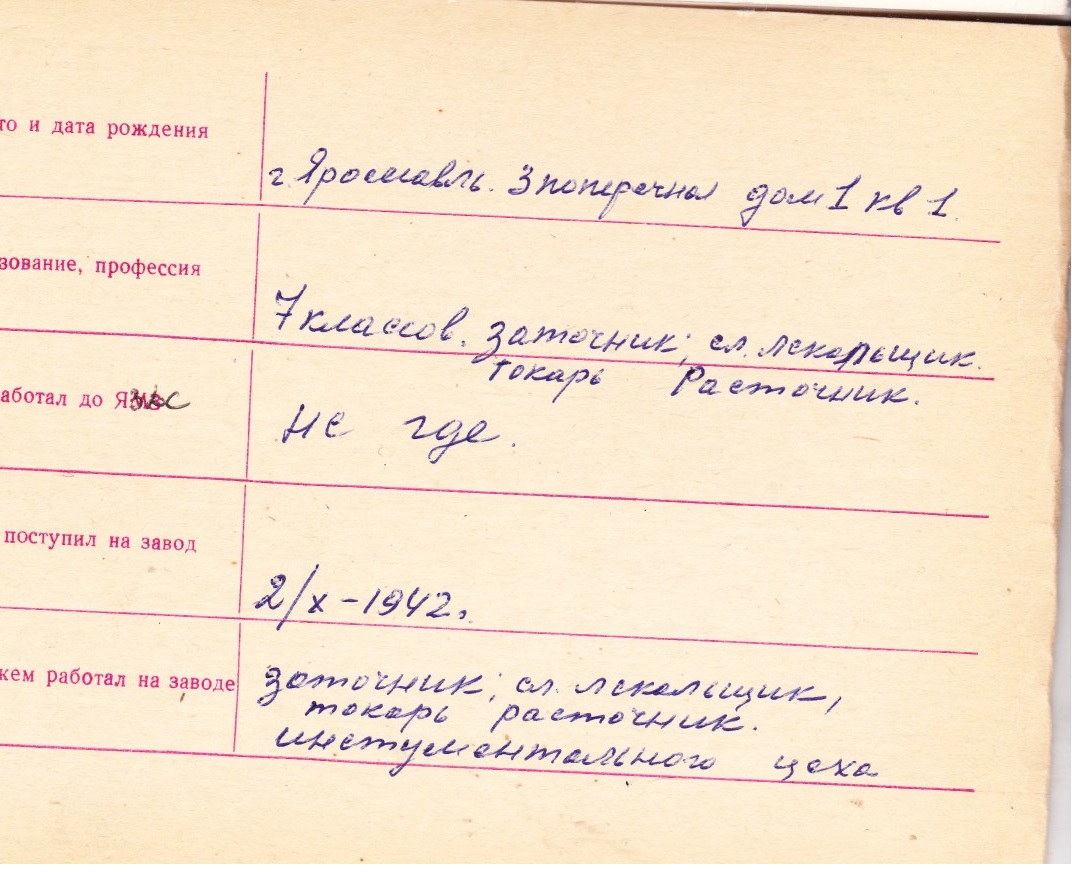 то и дата рождения
г. Ярославль. 3 поперечная дом 1 кв 1.
зование, профессия
7 классов. заточник; сл. лекальщик.
токарь Расточник.
аботал до
не где.
поступил на завод
2/х - 1942г.
кем работал на заводе
заточник; сл. лекальщик,
токарь расточник.
инстументального цеха